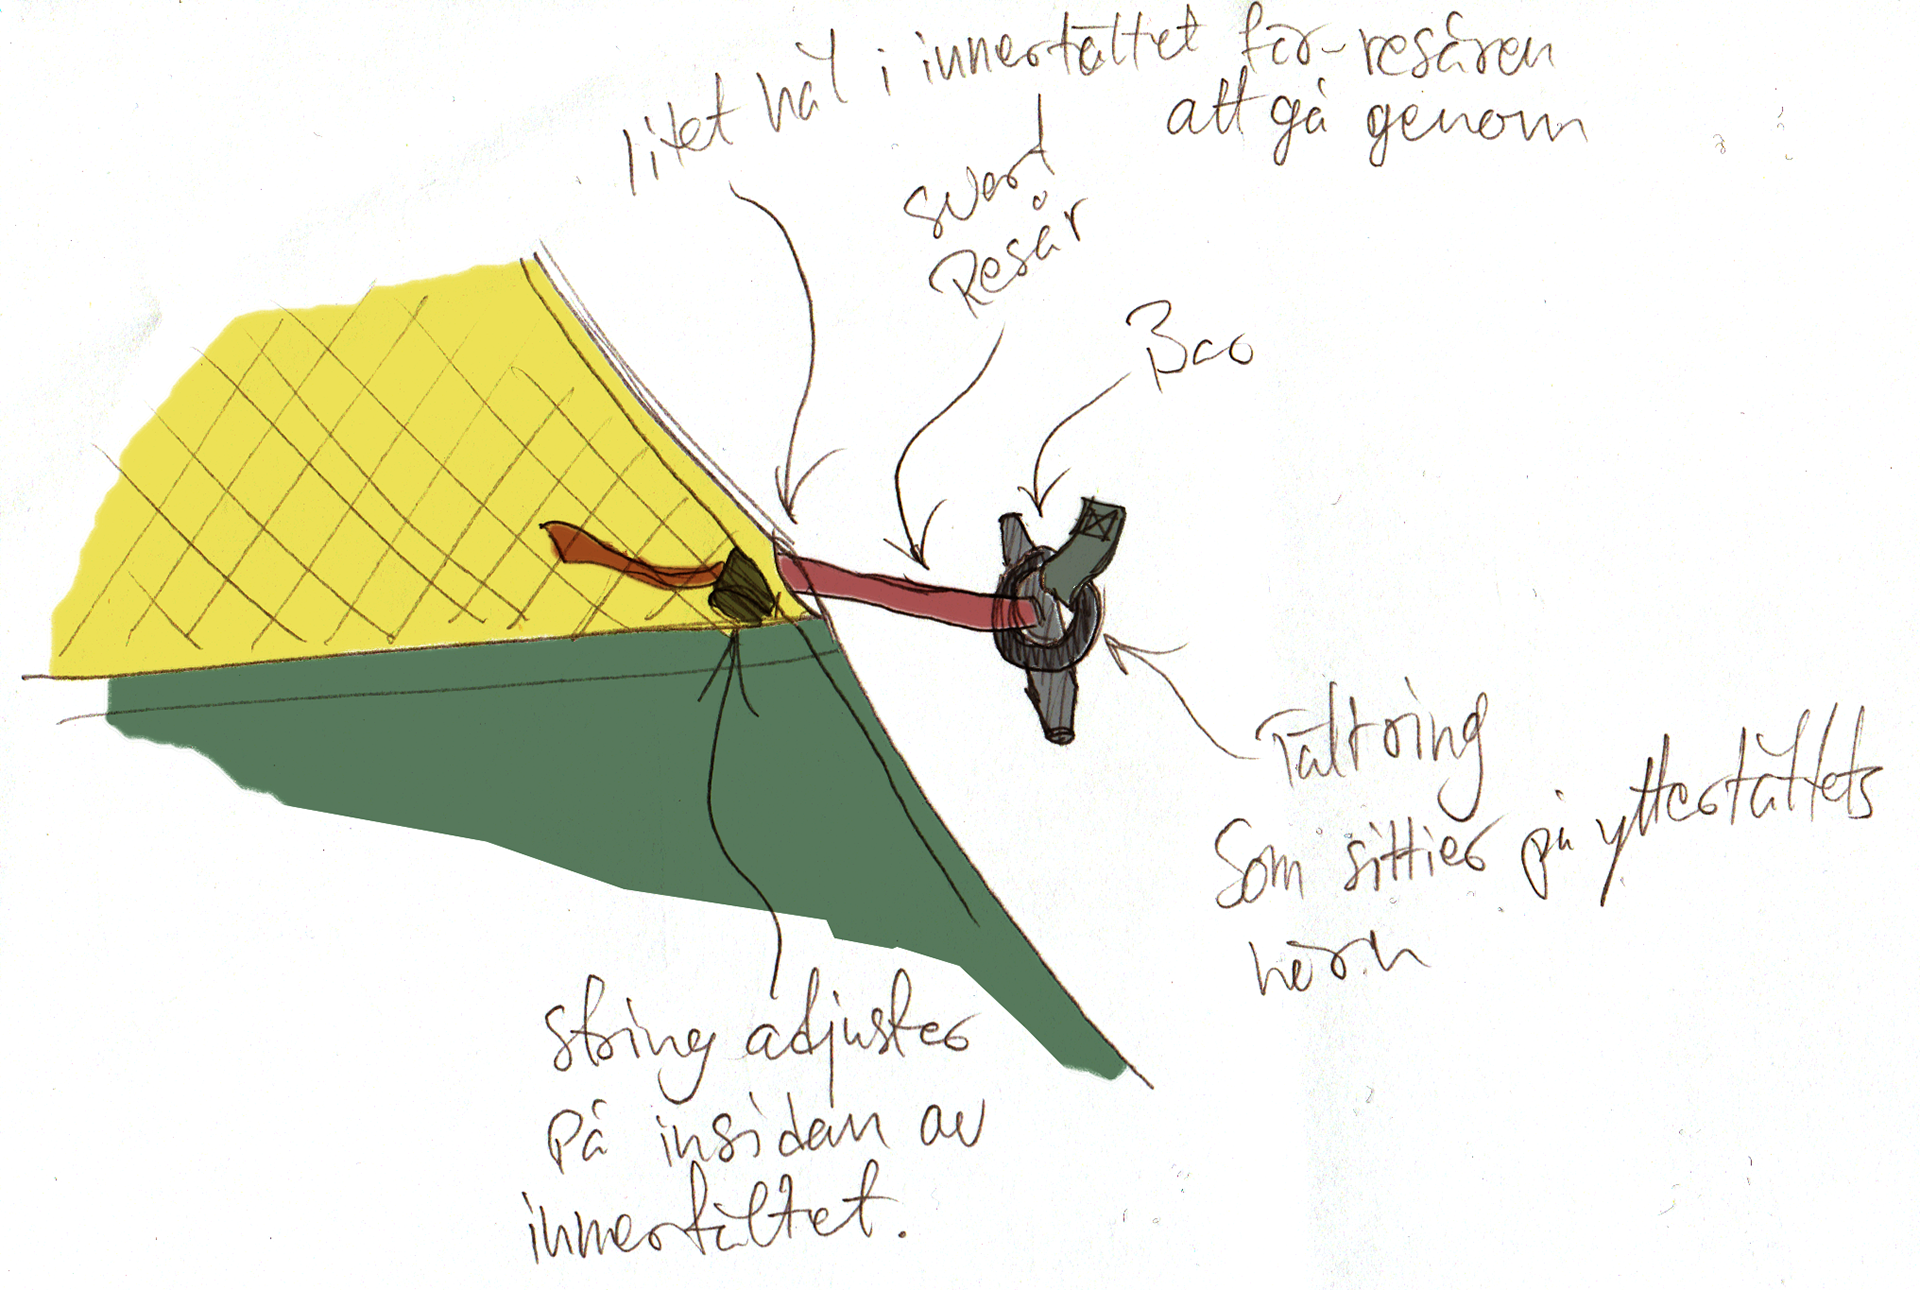 litet hål i innertältet för resåren
att gå genom
svart
Resår
Tältring
Som sitter på yttertältets
hörn
string adjuster
på insidan av
innertältet.